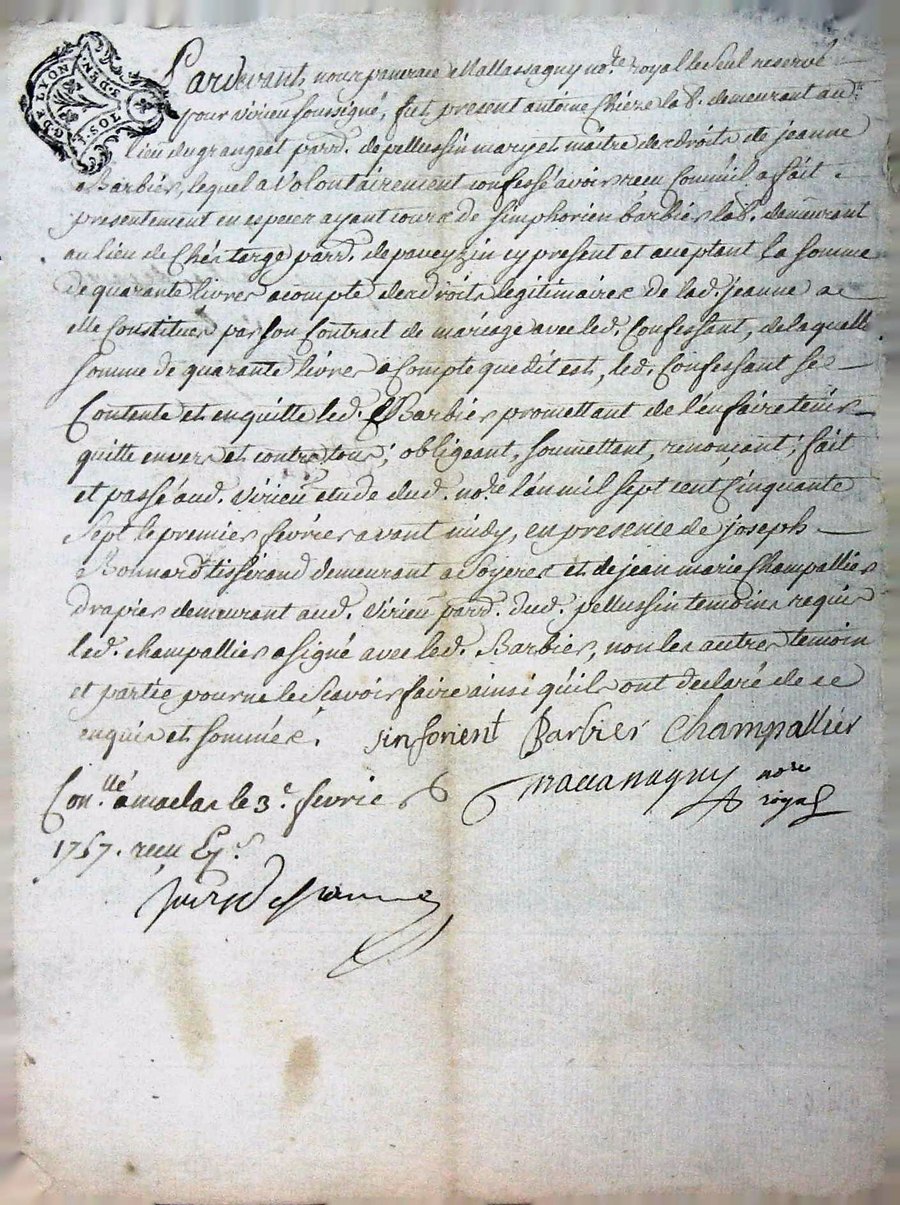 G. DE LYON
I. SOL
3. DEN
Pardevant, nous pancrace Mallassagny no.re royal le seul reservé
pour virieu soussigné, fut present antoine Chiéze lab.r demeurant au
lieu du grangeat parr. de pellussin mary et maitre des droits de jeanne
Barbier, lequel a volontairement confessé avoir receu Comme il a fait
presentement en especes ayant cours de simphorien barbier lab.r demeurant
au lieu de parr. de paveyzin cy present et aceptant la somme
de quarante livres acompte des droits legitimaires de lad. jeanne a
elle Constitues par son Contract de mariage avec led. Confessant, de laquelle
somme de quarante livres a Compte que dit est, led. Confessant se
Contente et en quitte led. Barbier promettant de l'en faire tenir
quitte envers et contre tous; obligeant, soumettant, renonçant; fait
et passé aud. virieu etude dud. no.re l'an mil sept cent Cinquante
Sept le premier février avant midy, en presence de joseph
Bonnard tisserand demeurant a Soyeres et de jean marie Champallier
drapier demeurant aud. virieu parr. dud. pellussin temoins requis
led. champallier a signé avec led. Barbier, non les autres temoin
et partie pour ne le sçavoir faire ainsi qu'ils ont declaré de ce
enquis et sommés.
sinforient Barbier Champallier
no.re
royal
Con.llé a maclas le 3.e fevrie
1757. receu